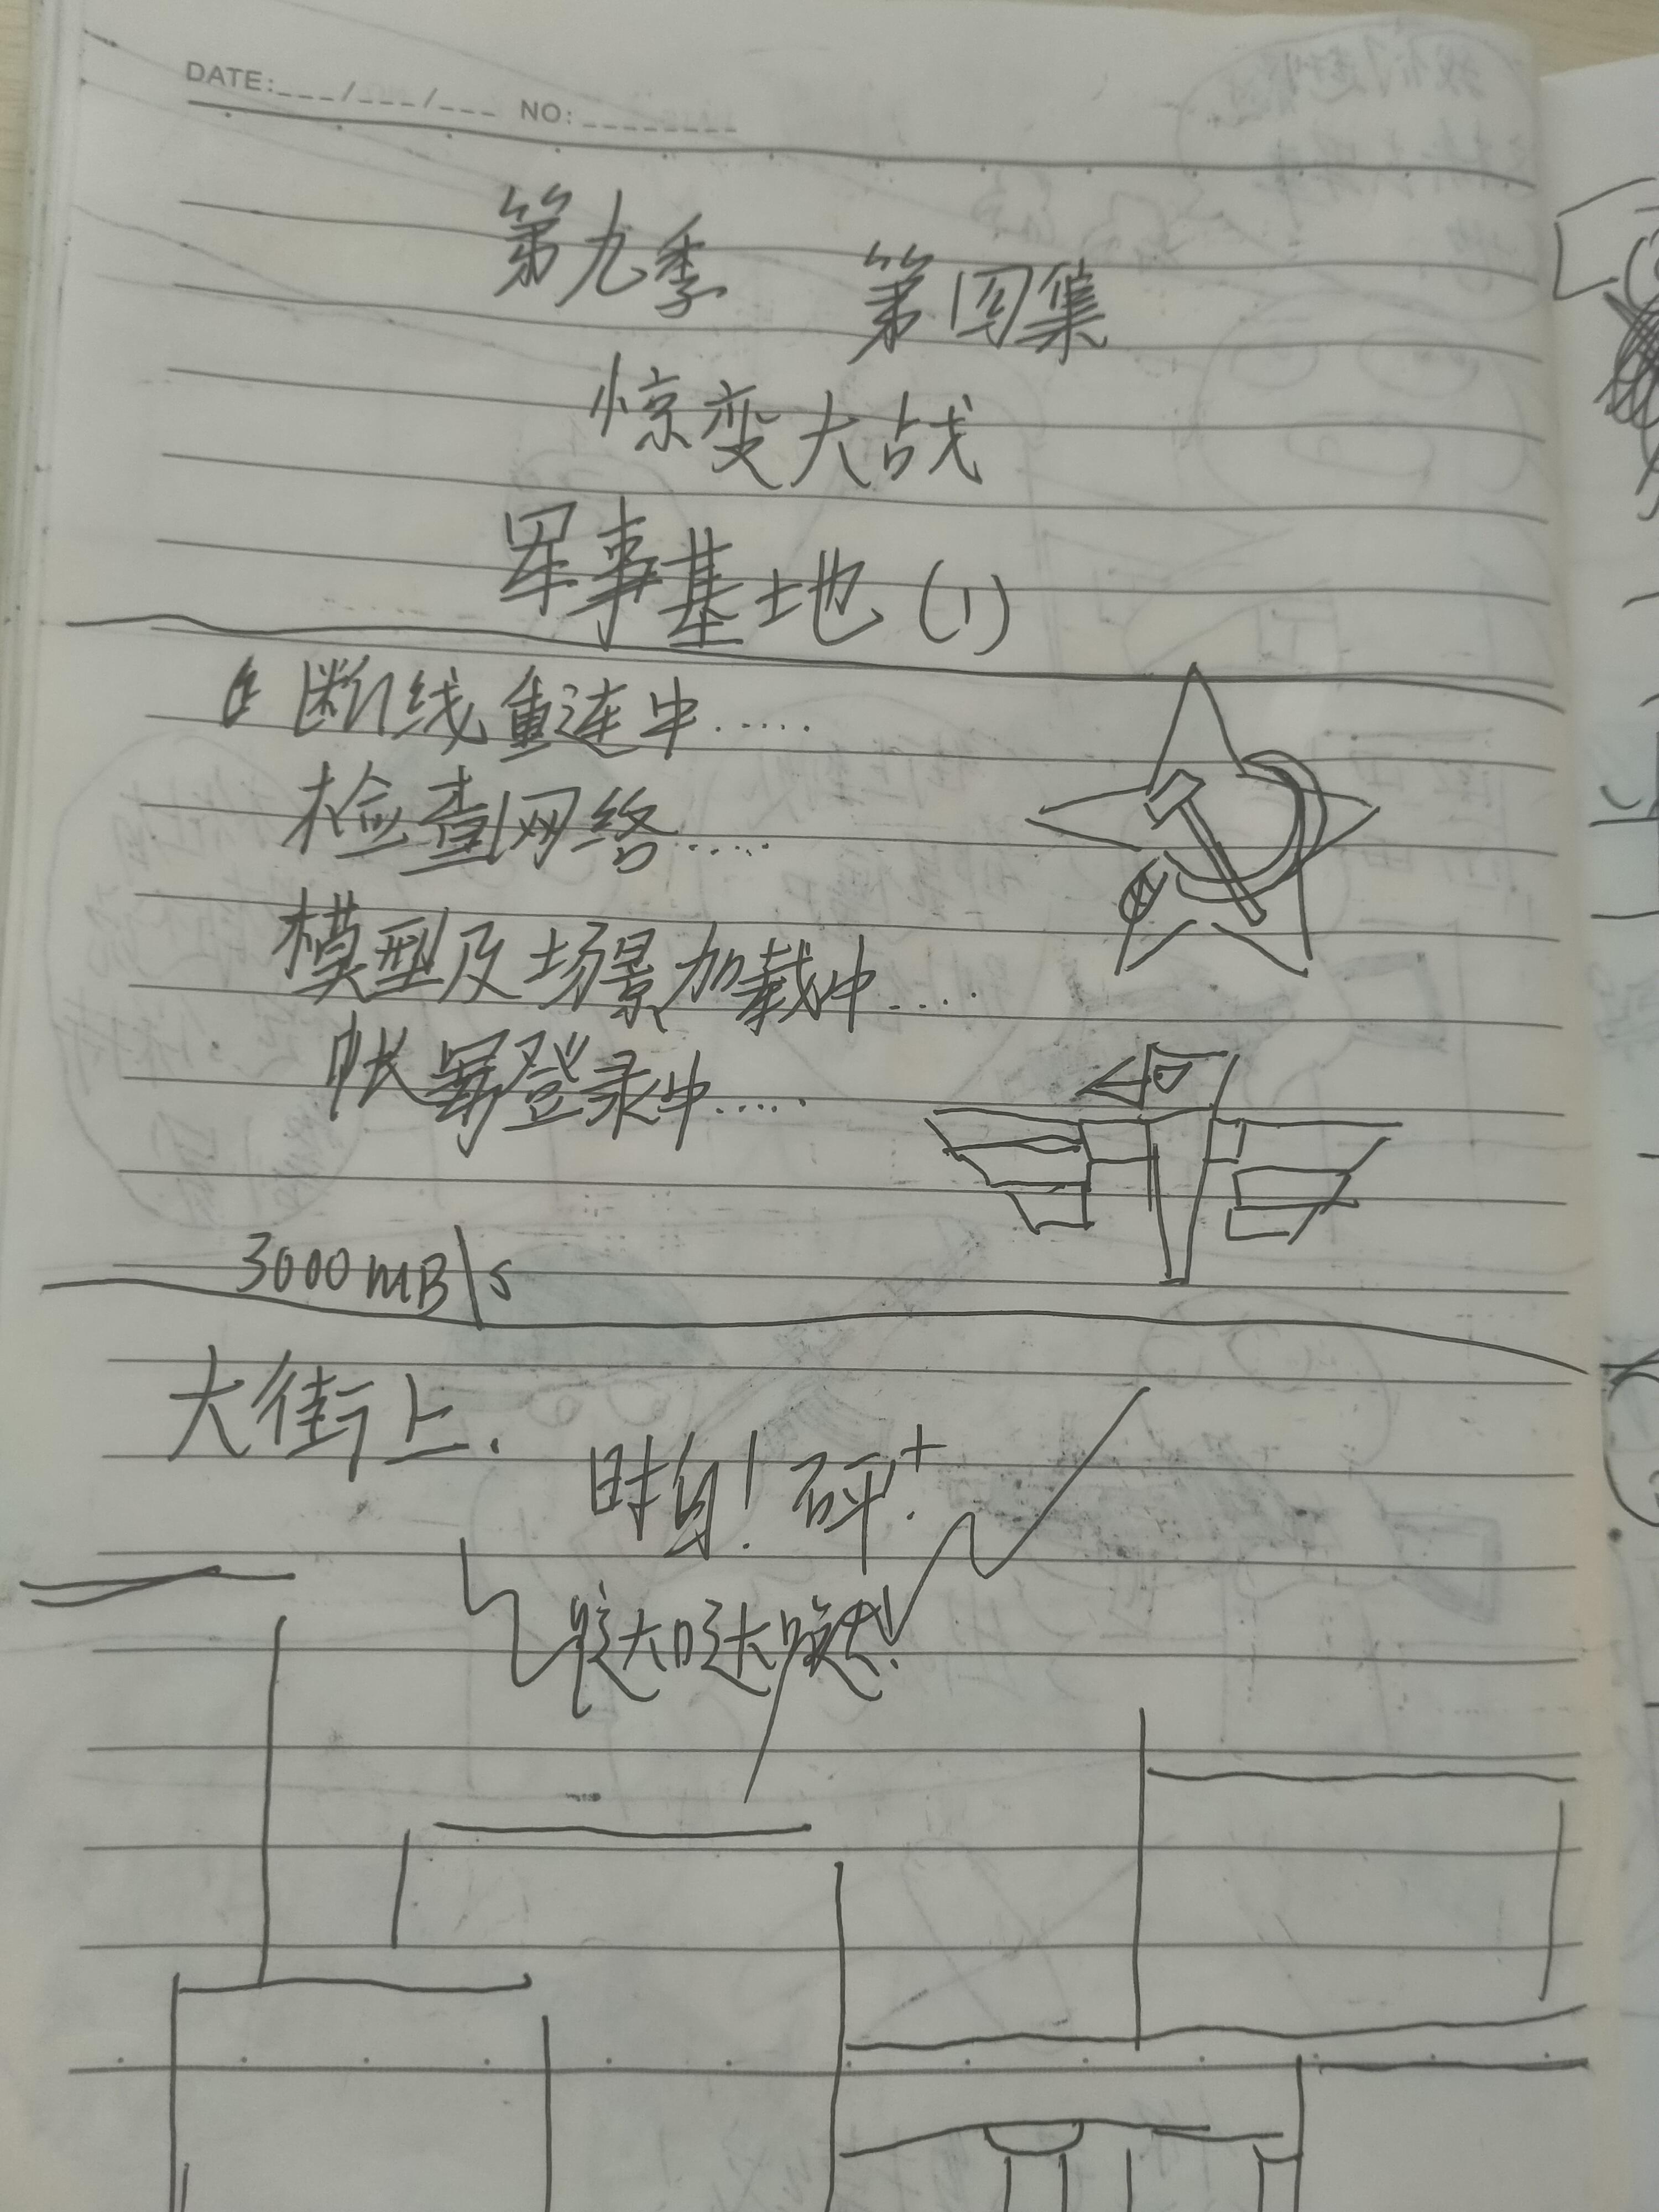 DATE:___/___/___ NO:________
第九季 第四集
惊变大战
军事基地(1)
断线重连中.....
检查网络.....
模型及场景加载中.....
帐号登录中.....
3000MB\s
大街上.
砰!
哒哒哒!